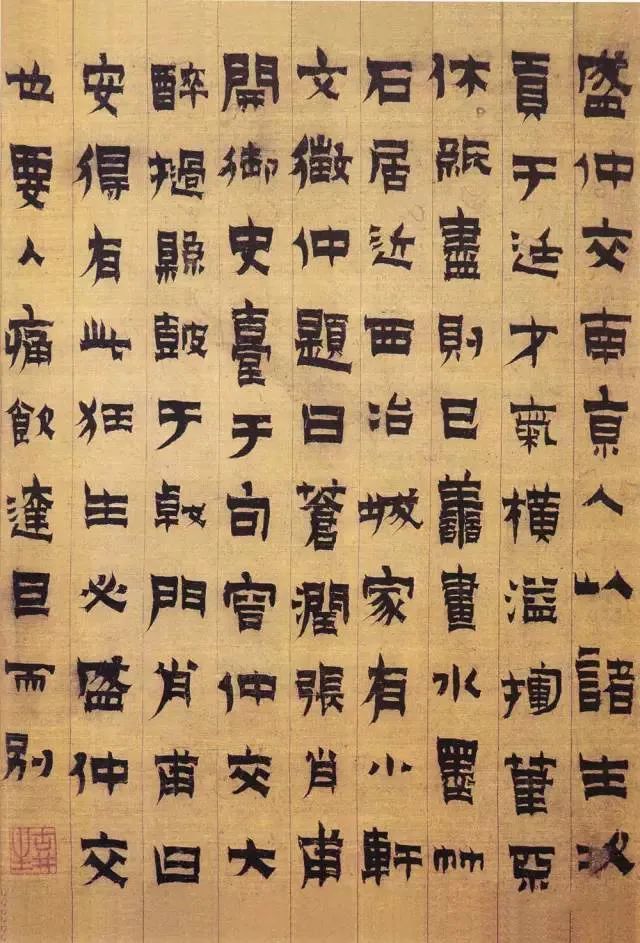 盛仲交南京人以諸生次
貢于廷才氣橫溢揮筆不
休紙盡則已善畫水墨竹
石居近西冶城家有小軒
文徵仲題曰蒼潤張肖甫
開御史臺于句容仲交大
醉撾縣鼓于轅門肖甫曰
安得有此狂生必盛仲交
也要入痛飲達旦而別